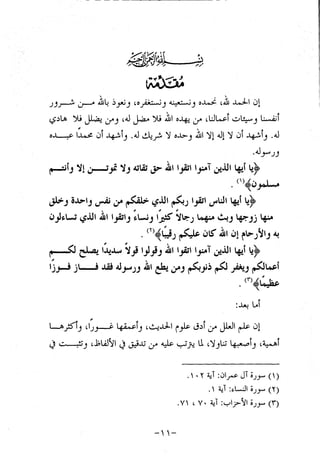 بسم الله الرحمن الرحيم
مقدمة
إن الحمد لله، نحمده ونستعينه ونستغفره، ونعوذ بالله مــن شــرور
أنفسنا وسيئات أعمالنا، من يهده الله فلا مضل له، ومن يضلل فلا هادي
له. وأشهد أن لا إله إلا الله وحده لا شريك له. وأشهد أن محمدًا عبــده
ورسوله.
﴿يا أيها الذين آمنوا اتقوا الله حق تقاته ولا تموتــن إلا وأنتــم
مسلمون﴾(١).
﴿يا أيها الناس اتقوا ربكم الذي خلقكم من نفس واحدة وخلق
منها زوجها وبث منهما رجالاً كثيرًا ونساءً واتقوا الله الذي تساءلون
به والأرحام إن الله كان عليكم رقيبًا﴾(٢).
﴿يا أيها الذين آمنوا اتقوا الله وقولوا قولاً سديدًا يصلح لكــم
أعمالكم ويغفر لكم ذنوبكم ومن يطع الله ورسوله فقد فــاز فــوزًا
عظيمًا﴾(٣).
أما بعد:
إن علم العلل من أدق علوم الحديث، وأعمقها غــورًا، وأكثرهــا
أهمية، وأصعبها تناولاً، لما يترتب عليه من تدقيق في الألفاظ، وتثبــت في
(١) سورة آل عمران: آية ١٠٢.
(٢) سورة النساء: آية ١.
(٣) سورة الأحزاب: آية ٧٠، ٧١.
-١١-